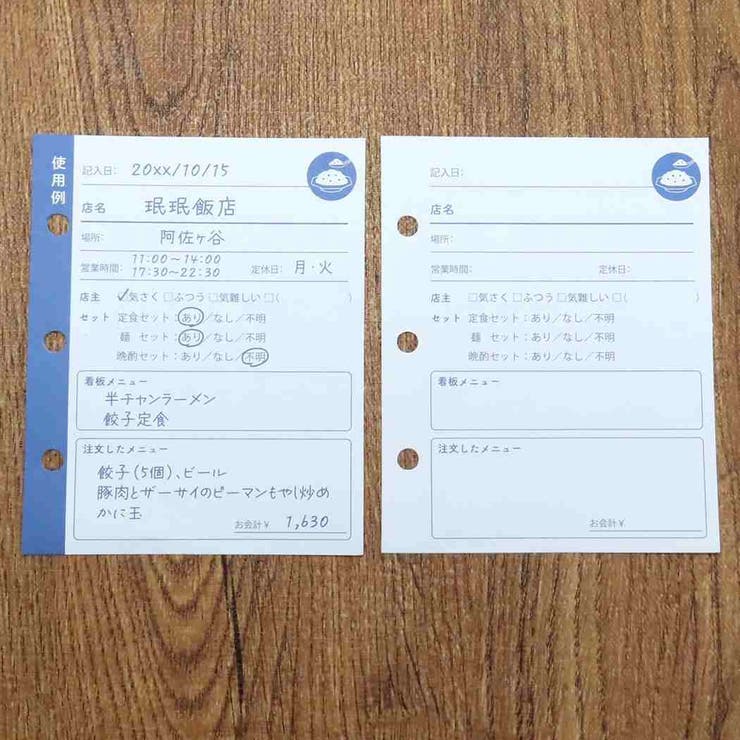 使用例
記入日: 20xx/10/15
店名 珉珉飯店
場所: 阿佐ヶ谷
営業時間: 11:00〜14:00
17:30〜22:30 定休日: 月・火
店主 ✓気さく □ふつう □気難しい □( )
セット 定食セット:あり/なし/不明
麺 セット:あり/なし/不明
晩酌セット:あり/なし/不明
看板メニュー
半チャンラーメン
餃子定食
注文したメニュー
餃子(5個)、ビール
豚肉とザーサイのピーマンもやし炒め
かに玉
お会計¥ 1,630
記入日:
店名
場所:
営業時間: 定休日:
店主 □気さく □ふつう □気難しい □( )
セット 定食セット:あり/なし/不明
麺 セット:あり/なし/不明
晩酌セット:あり/なし/不明
看板メニュー
注文したメニュー
お会計¥